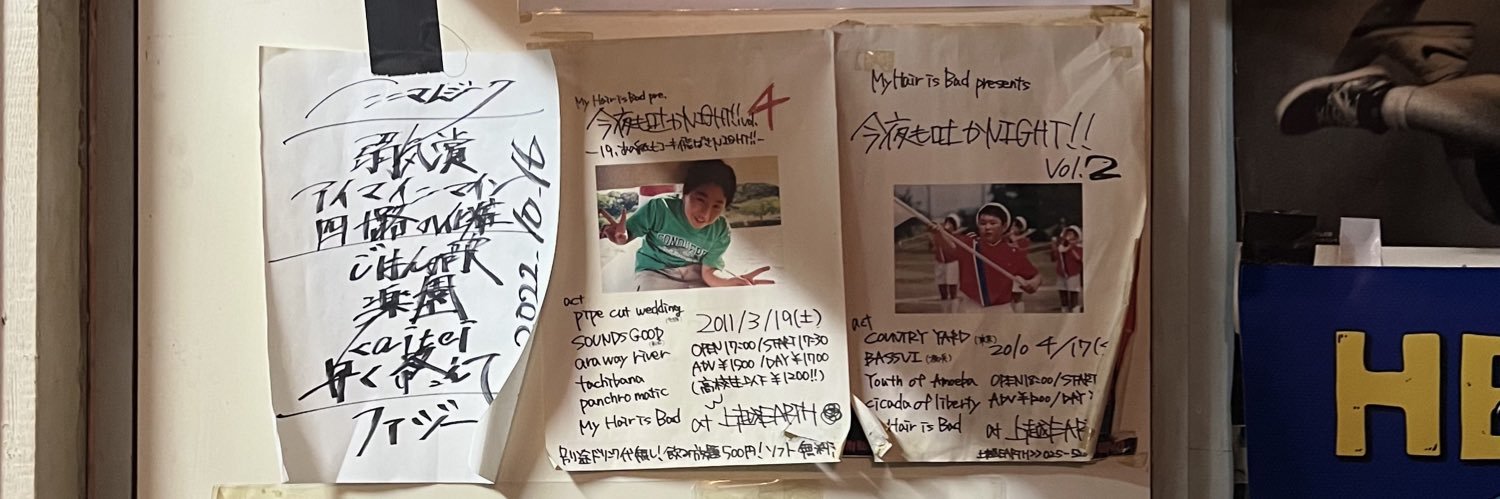 ニニマムジーク
弱気演
アイマイニーマイン
ごはんの歌
楽園
kaitei
早く帰って
ファジー
2022.10.4
My Hair is Bad pre.
今夜も吐かNIGHT!! vol.4
pipe cut wedding
SOUNDS GOOD
araway river
tachibana
panchromatic
My Hair is Bad
act
2011/3/19(土)
OPEN 17:00/START 17:30
ADV ¥1500/DAY ¥1700
(高校生以下 ¥1200!!)
at 上越EARTH
別途ドリンク代無し!飲み放題500円!ソフト無料
CONQUERE
My Hair is Bad presents
今夜も吐かNIGHT!!
vol.2
act
COUNTRY YARD (東京)
BASSUI
Youth of Amoeba
cicada of liberty
Hair is Bad
2010 4/17(
OPEN 18:00/START
ADV ¥1200/DAY
at 上越EAR
上越EARTH>>025-520
HE